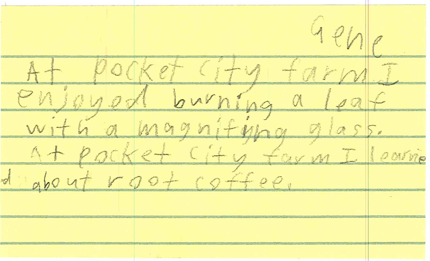 Gene
At pocket city farm I
enjoyed burning a leaf
with a magnifing glass.
At pocket city farm I learnie
d about root coffee.